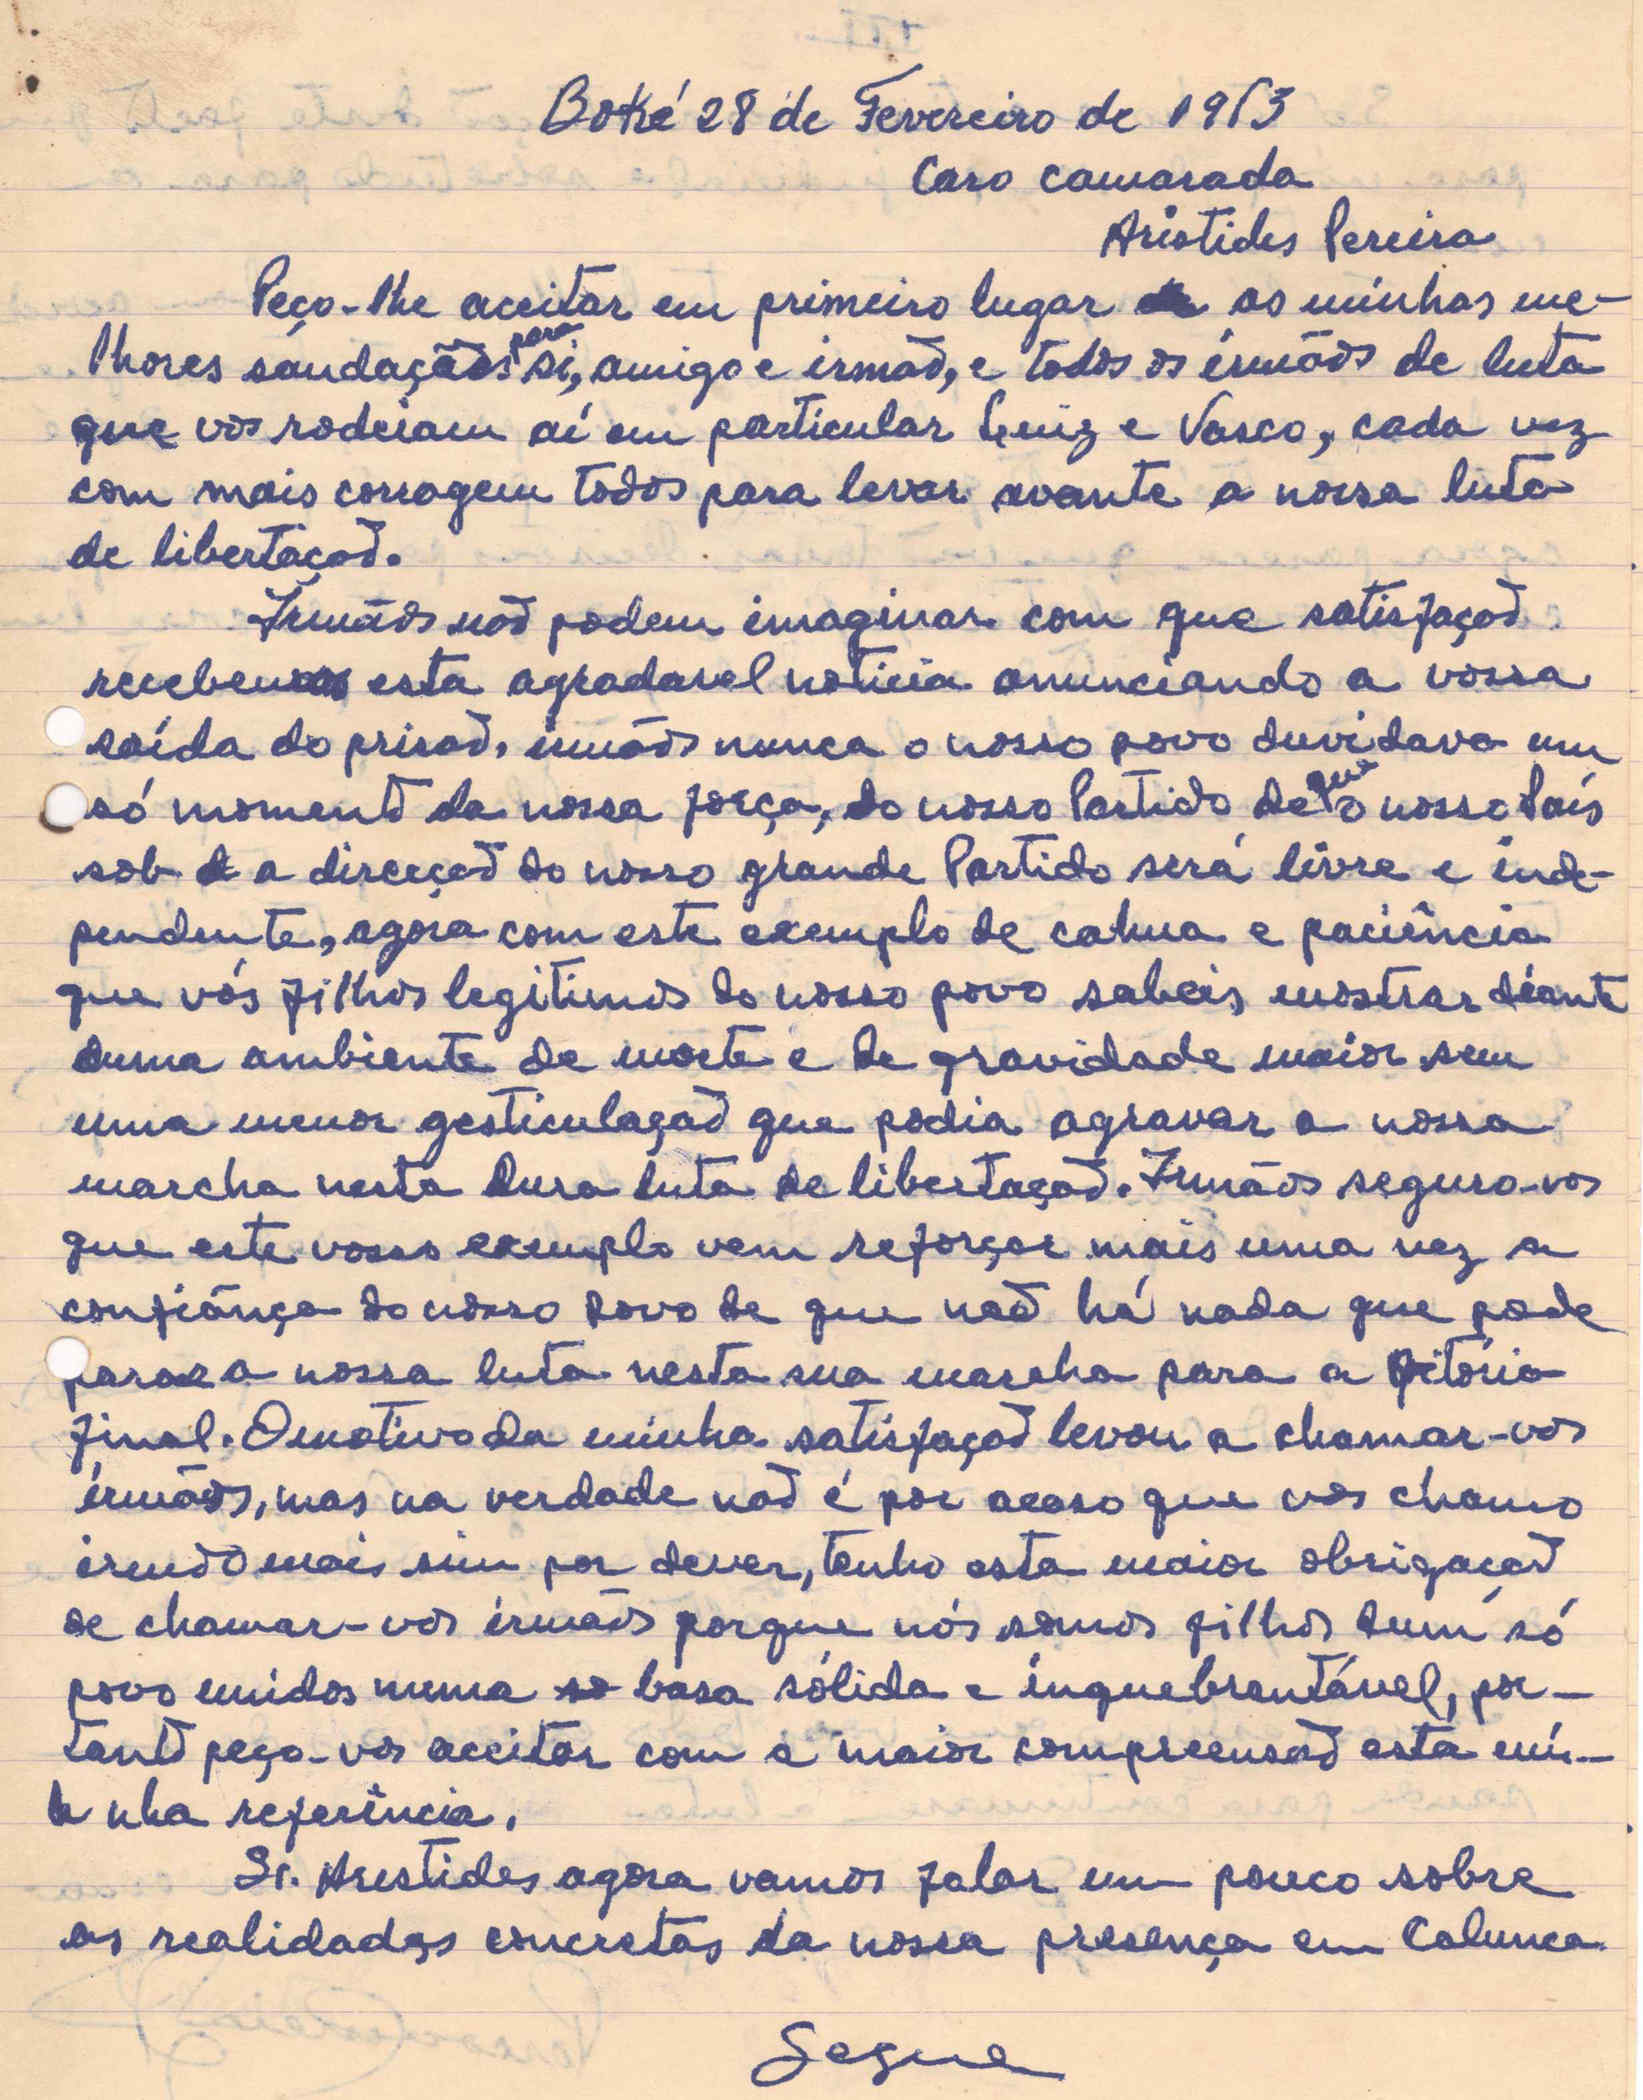 Boké 28 de Fevereiro de 1963
Caro camarada
Aristides Pereira
Peço-lhe aceitar em primeiro lugar as minhas me-
lhores saudaçãos para si, amigo e irmão, e todos os irmãos de luta
que vos rodeiam aí em particular Luiz e Vasco, cada vez
com mais corragem todos para levar avante a nossa luta
de libertaçaõ.
Irmãos naõ podem imaginar com que satisfaçaõ
recebemos esta agradavel noticia anunciando a vossa
saída do prisaõ, irmãos nunca o nosso povo duvidava um
só momento da nossa força, do nosso Partido de que o nosso País
sob a direcçaõ do nosso grande Partido será livre e inde-
pendente, agora com este exemplo de calma e paciência
que vós filhos legitimos do nosso povo sabeis mostrar diante
duma ambiente de morte e de gravidade maior sem
uma menor gesticulaçaõ que podia agravar a nossa
marcha nesta dura luta de libertaçaõ. Irmãos seguro-vos
que este vosso exemplo vem reforçar mais uma vez a
confiânça do nosso povo de que naõ há nada que pode
parar a nossa luta nesta sua marcha para a vitória
final. O motivo da minha satisfaçaõ levou a chamar-vos
irmãos, mas na verdade naõ é por acaso que vos chamo
irmão mais sim por dever, tenho esta maior obrigaçaõ
de chamar-vos irmãos porque nós somos filhos dum só
povo unidos numa basa sólida e inquebrantável, por-
tanto peço-vos aceitar com a maior compreensaõ esta mi-
nha referência.
Sr. Arestides agora vamos falar um pouco sobre
as realidades concretas da nossa presença em Colunca
Segue